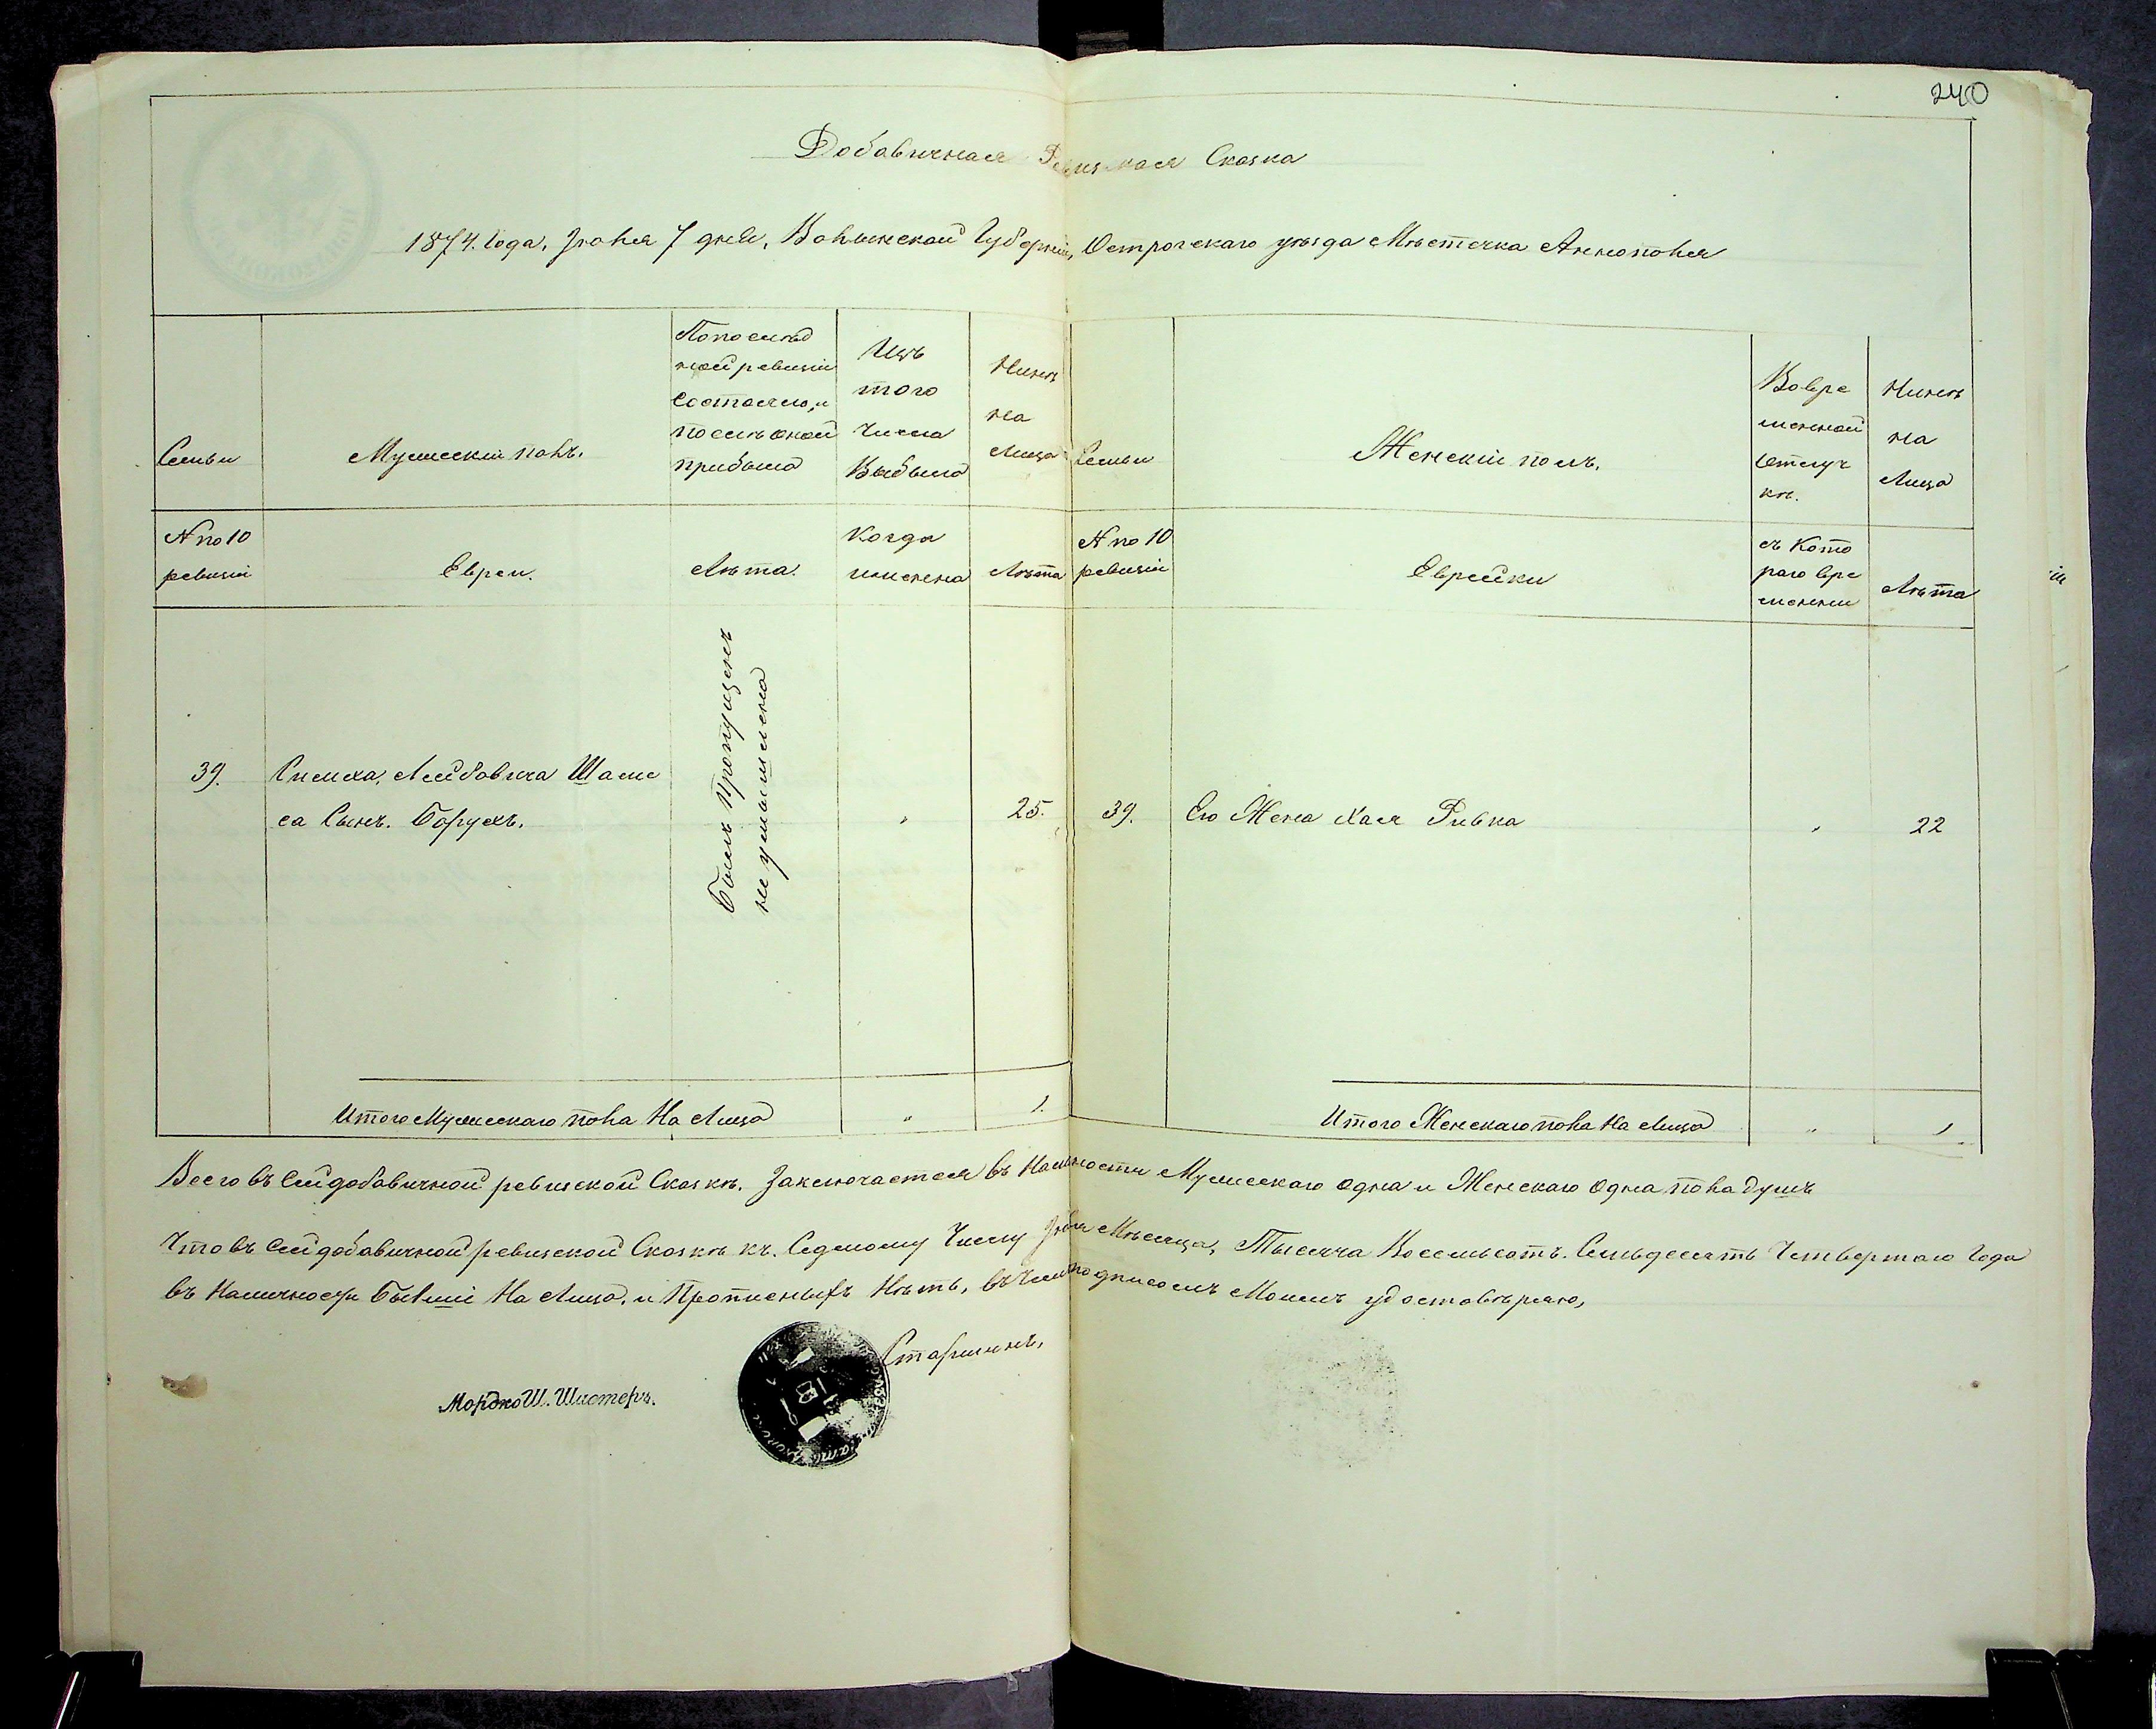 240
Добавичная Ревизская Сказка
1874. Года, Іюля 7 дня, Волынской Губерніи, Острогскаго уѣзда Мѣстечка Аннополя
Семьи
Мужескій полъ.
По послѣд
ней ревизіи
состояло, и
послѣ оной
прибыло
Изъ
того
числа
Выбыло
Нинѣ
на
Лицо
Семьи
Женскій полъ.
Во вре
менной
Отлуч
кѣ.
Нинѣ
на
Лицо
№ по 10
ревизіи
Евреи.
Лѣта.
Когда
именно
Лѣта
№ по 10
ревизіи
Еврейки
съ Кото
раго вре
мени
Лѣта
39.
Симха, Лейбовича Шам
са Сынъ. Борухъ.
Былъ пропущенъ
не умышлено
25.
39.
Его Жена Хая Ривка
22
Итого Мужескаго пола На Лицо
1.
Итого Женскаго пола На Лицо
1
Всего въ сей добавичной ревизской Сказкѣ. Заключается въ Наличности Мужескаго одна и Женскаго одна пола душъ
Что въ сей добавичной ревизской Сказкѣ къ. Седмому Числу Іюля Мѣсяца, Тысяча Восемьсотъ. Семьдесятъ Четвертаго Года
въ Наличности Бывшіи На Лицо, и Прописныхъ Нѣтъ, въ чемъ подписомъ Моимъ удостовѣряю,
Старшинъ,
Мордко Ш. Шистеръ.